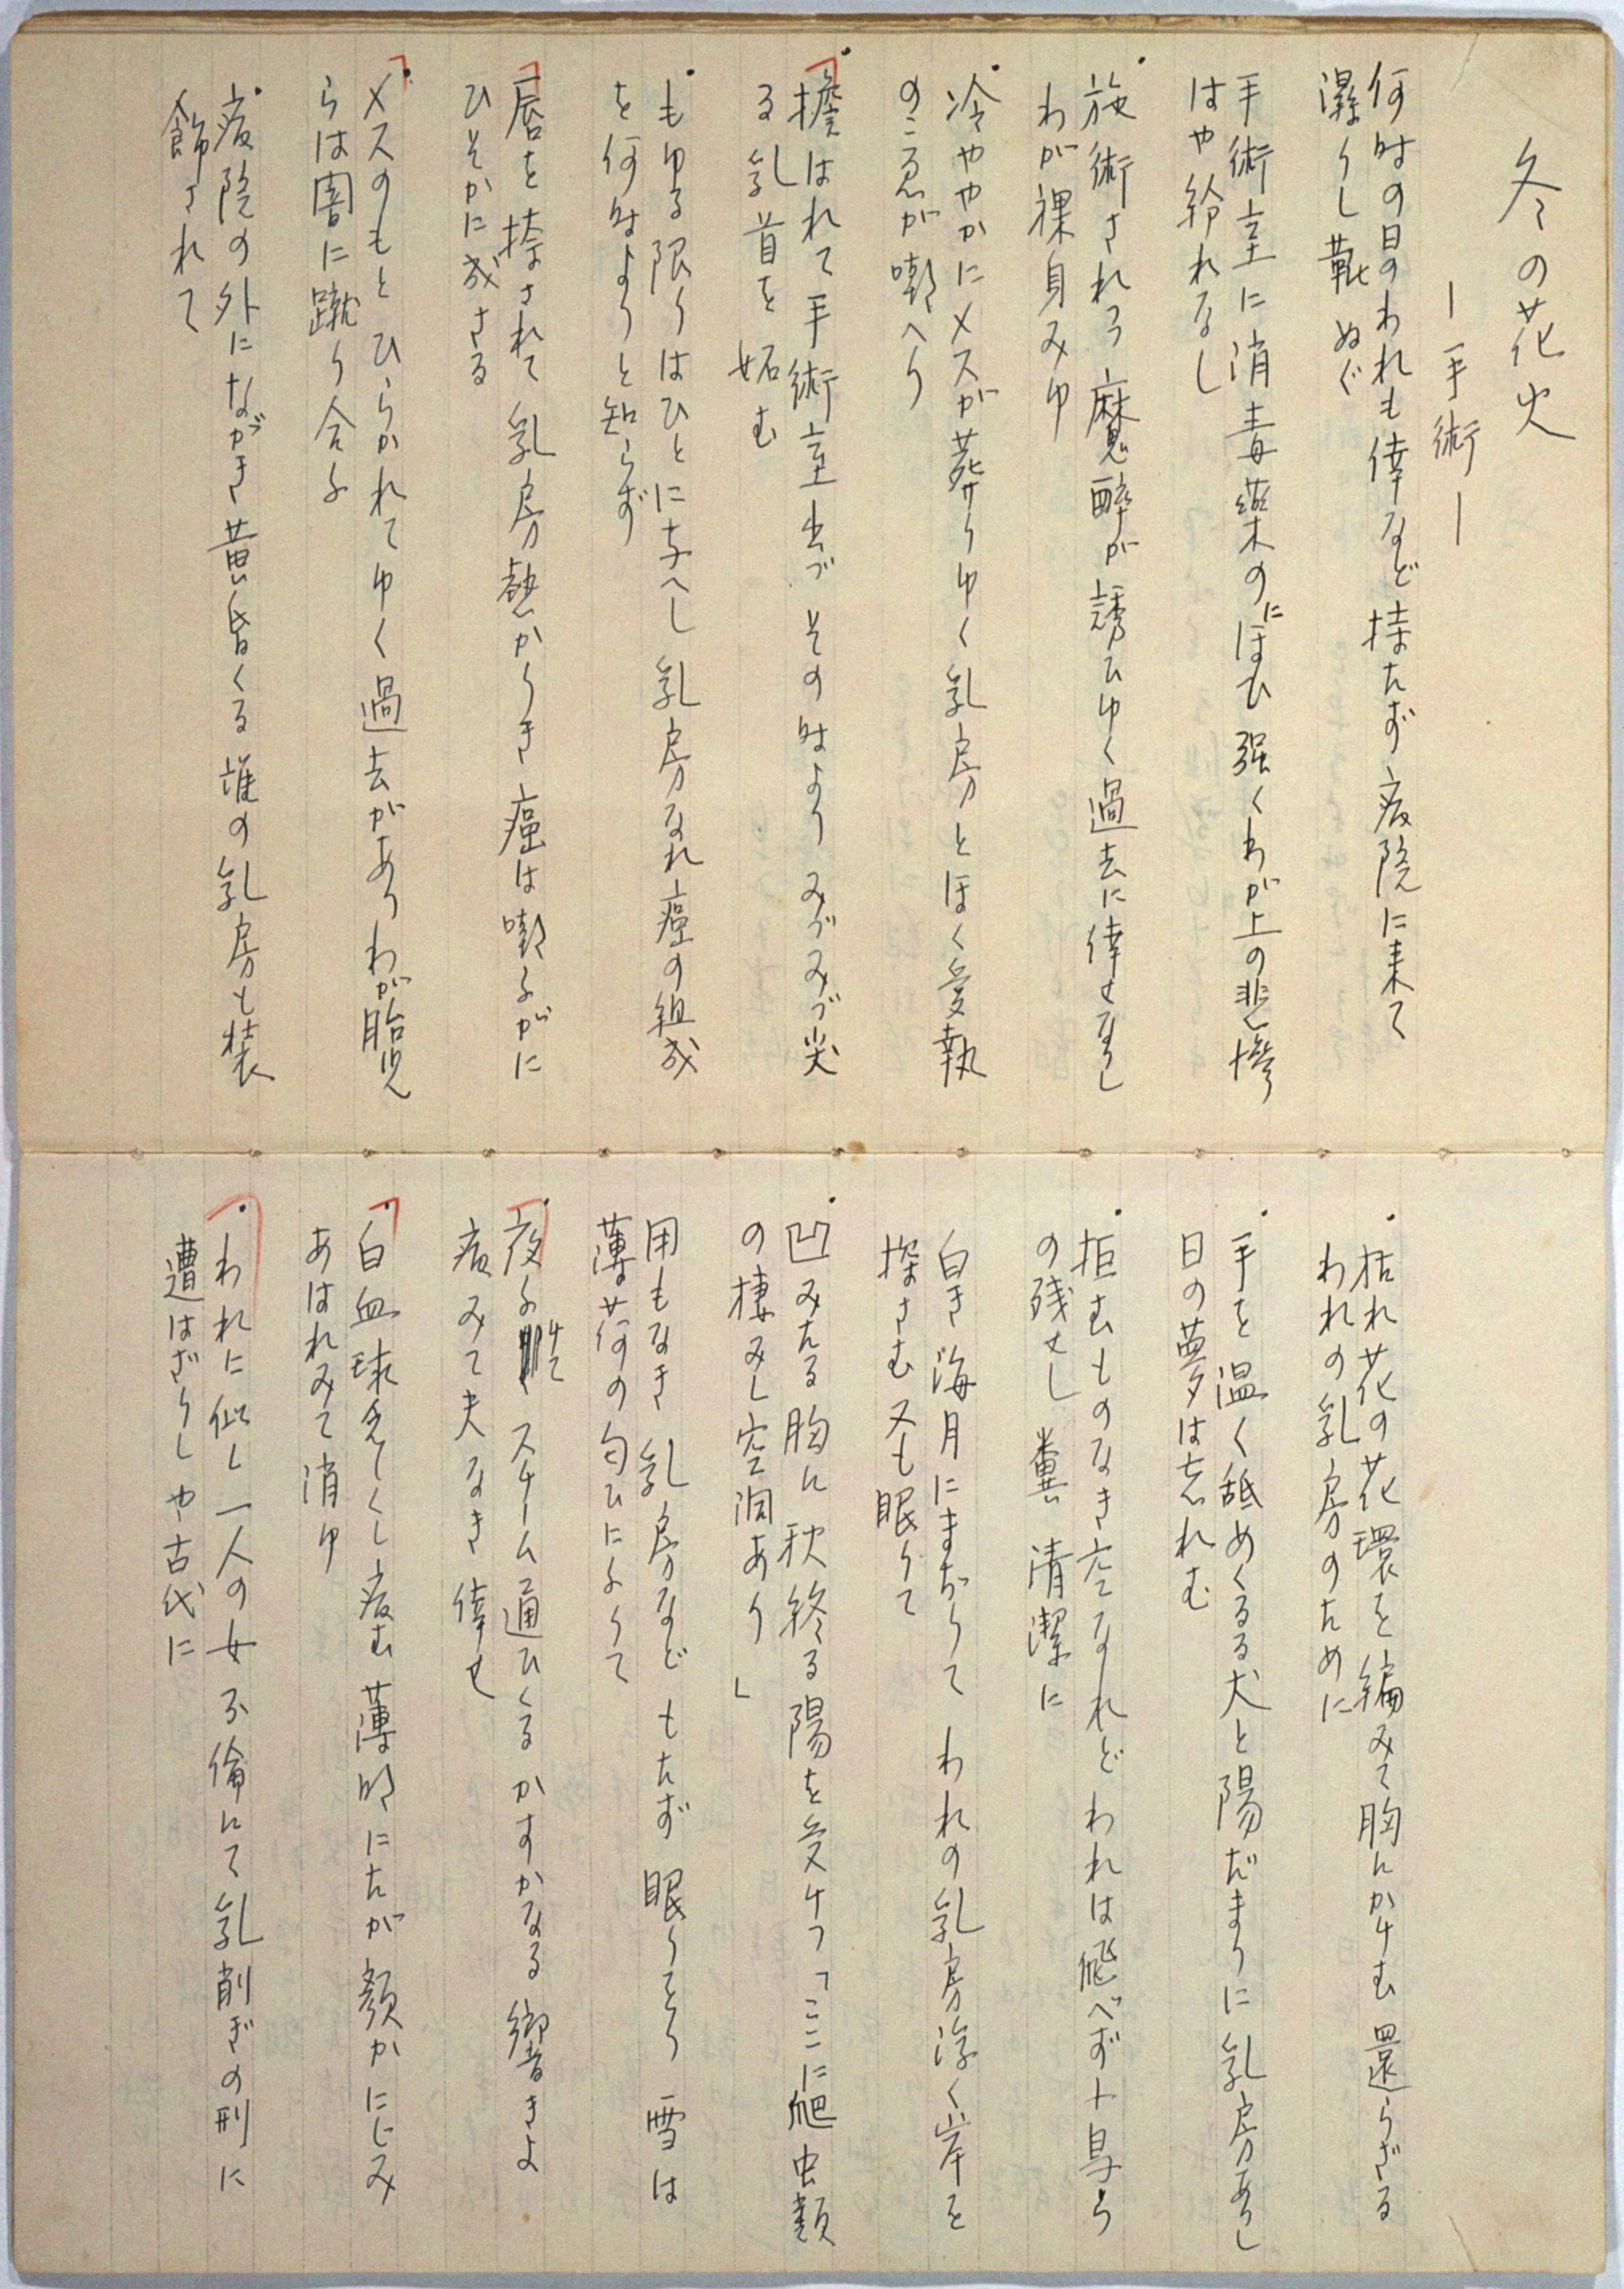 冬の花火
―手術―
何時の日のわれも倖など持たず病院に来て
濡りし靴ぬぐ
手術室に消毒薬のにほひ強くわが上の悲惨
はや紛れなし
施術されつゝ麻酔が誘ひゆく過去に倖せなし
わが裸身みゆ
冷ややかにメスが葬りゆく乳房とほく愛執
のこゑが嘲へり
擔はれて手術室出づその時よりみづみづ尖
る乳首を妬む
もゆる限りはひとに与へし乳房なれ癌の組成
を何時よりと知らず
唇を捺されて乳房熱かりき癌は嘲ふがに
ひそかに成さる
メスのもとひらかれてゆく過去がありわが胎児
らは闇に蹴り合ふ
病院の外にながき黄昏くる誰の乳房も装
飾されて
枯れ花の花環を編みて胸にかけむ還らざる
われの乳房のために
手を温く舐めくるる犬と陽だまりに乳房ありし
日の夢は忘れむ
拒むものなき空なれどわれは飛べずト鳥ら
の残せし糞清潔に
白き海月にまぢりてわれの乳房浮く岸を
探さむ又も眠りて
凹みたる胸に秋終る陽を受けつ「ここに爬虫類
の棲みし空洞あり」
用もなき乳房などもたず眠りをり雪は
薄荷の匂ひによりて
夜ふけてスチーム通ひくるかすかなる響きよ
病みて夫なき倖せ
白血球名くし病む薄明にたが顔かにじみ
あはれみて消ゆ
われに似し一人の女不倫にて乳削ぎの刑に
遭はざりしや古代に